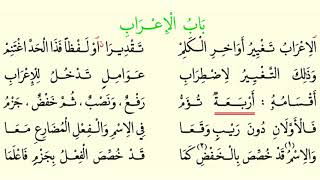 بَابُ الْإِعْرَابِ
اَلِاعْرَابُ تَغْيِيرُ أَوَاخِرِ الْكَلِمْ تَقْدِيرًا اوْ لَفْظًا فَذَا الْحَدَّ اغْتَنِمْ
وَذَلِكَ التَّغْيِيرُ لِاضْطِرَابِ عَوَامِلٍ تَدْخُلُ لِلْإِعْرَابِ
أَقْسَامُهُ : أَرْبَعَةٌ تُؤَمُّ رَفْعٌ، وَنَصْبٌ، ثُمَّ خَفْضٌ، جَزْمُ
فَالْأَوَّلَانِ دُونَ رَيْبٍ وَقَعَا فِي الِاسْمِ وَالْفِعْلِ الْمُضَارِعِ مَعَا
وَالِاسْمُ قَدْ خُصِّصَ بِالْخَفْضِ كَمَا قَدْ خُصِّصَ الْفِعْلُ بِجَزْمٍ فَاعْلَمَا